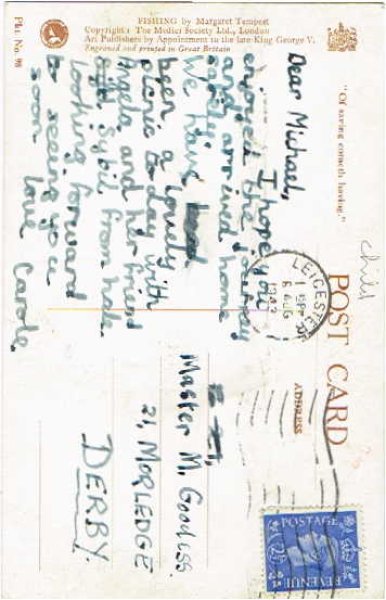 FISHING by Margaret Tempest
Copyright: The Medici Society Ltd., London
Art Publishers by Appointment to the late King George V.
Engraved and printed in Great Britain
Pkt. No. 98
"Of saving cometh having."
POST CARD
ADDRESS
child
Dear Michael,
I hope you
enjoyed the journey
and arrived home
safely.
We have
been a lovely
picnic to day with
Angela and her friend
Sybil from
looking forward
to seeing you
soon love Carole.
LEICESTER
1 15PM
6 AUG
194
POSTAGE
2½
REVENUE
Master M. Goodiss.
21, MORLEDGE
DERBY.